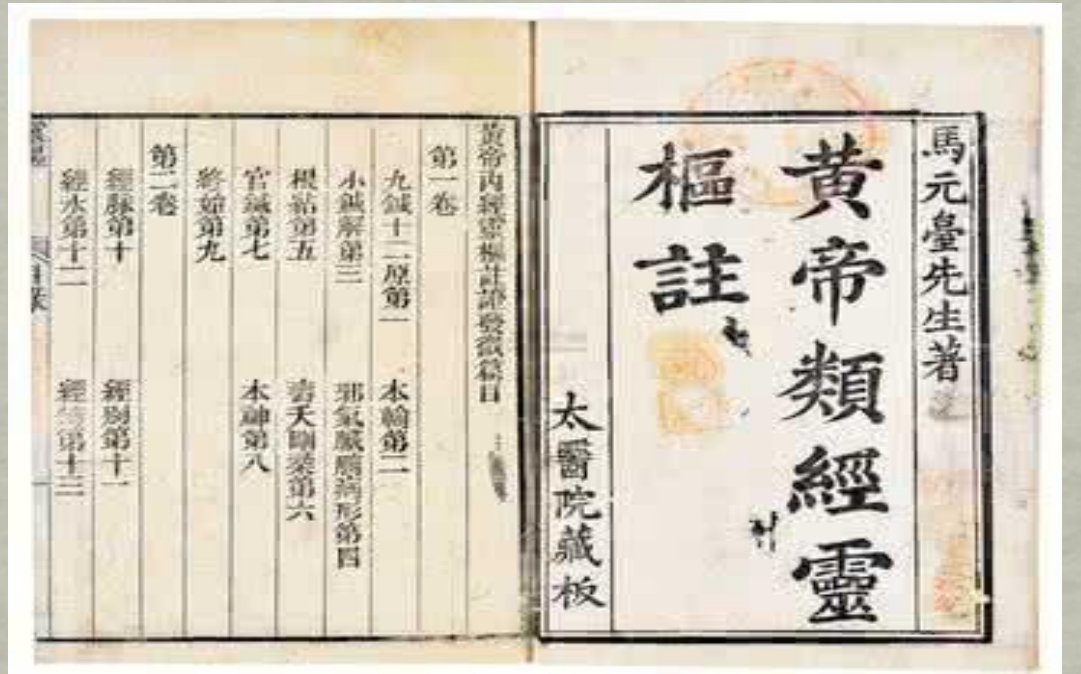 馬元臺先生著
黃帝類經靈
樞註
太醫院藏板
黃帝內經靈樞註證發微篇目
第一卷
九鍼十二原第一 本輸第二
小鍼解第三 邪氣臟腑病形第四
根結第五 壽夭剛柔第六
官鍼第七 本神第八
終始第九
第二卷
經脉第十 經別第十一
經水第十二 經筋第十三
目錄